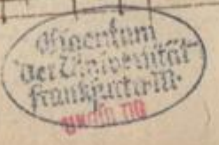 Eigentum
der Universität
Frankfurt a. M.